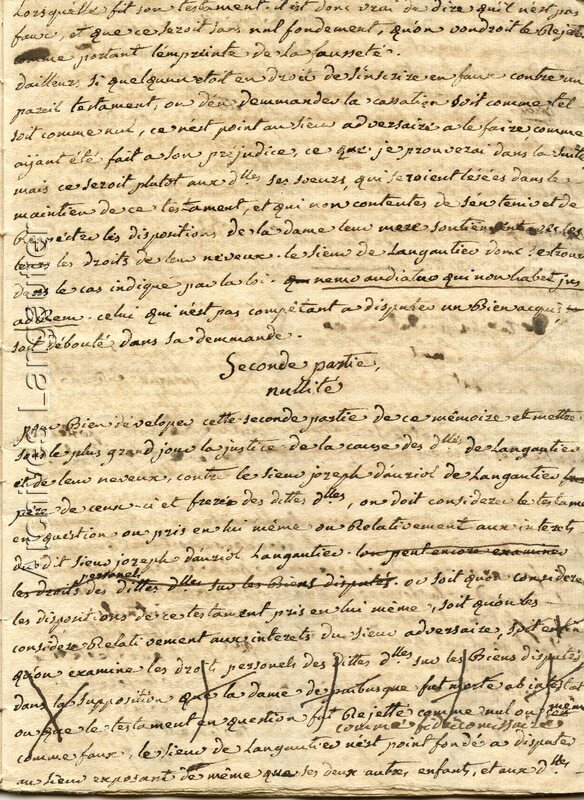 Lorsquelle fit son testament. il est donc vrai de dire quil n'est pas
faux, et que ce seroit sans nul fondement, qu'on voudroit le Rejetter
comme portant l'empreinte de la fausseté.
dailleurs si quelquun etoit en droit de s'inscrire en faux contre un
pareil testament, ou d'en demmander la cassation soit comme tel
soit comme nul, ce n'est point au sieur adversaire a le faire comme
aijant été fait a son préjudice, ce que je prouverai dans la suite
mais ce seroit plutot aux dlles ses soeurs, qui seroient lésées dans le
maintien de ce testament, et qui non contentes de s'en tenir et de
Respecter les dispositions de la dame leur mere soutiennent
les droits de leur neveux. le sieur de Langautier donc se trouve
dans le cas indiqué par la loi. nemo audiatur qui non habet jus
celui qui n'est pas compétant a disputer un Bien acquis
soit débouté dans sa demmande.
Seconde partie,
nullité
pour Bien déveloper cette seconde partie de ce mémoire et mettre
sous le plus grand jour la justice de la cause des dlles de Langautier
et de leur neveux, contre le sieur joseph dauriol de Langautier
père de ceux-ci et frere des dittes dlles, on doit considerer le testament
en question ou pris en lui même ou Relativement aux interets
du dit sieur joseph dauriol Langautier on peut encore examiner
les droits personels des dittes dlles sur les Biens disputés. ou soit qu'on considere
les dispositions de ce testament pris en lui même, soit qu'on les
considere Relativement aux interets du sieur adversaire, soit enfin
qu'on examine les droits personels des dittes dlles sur les Biens disputés
dans la supposition que la dame de fut morte ab intestat
ou que le testament en question fut Rejetté comme nul ou même
comme fideicomissaire
comme faux, le sieur de Langautier n'est point fondé a disputer
au sieur exposant de même que ses deux autres enfants, et aux dlles
Archives Langautier